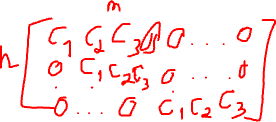 n
n [ C₁ C₂ C₃ 0 0 . . . 0
0 C₁ C₂ C₃ 0 . . . 0
0 . . . 0 C₁ C₂ C₃ ]